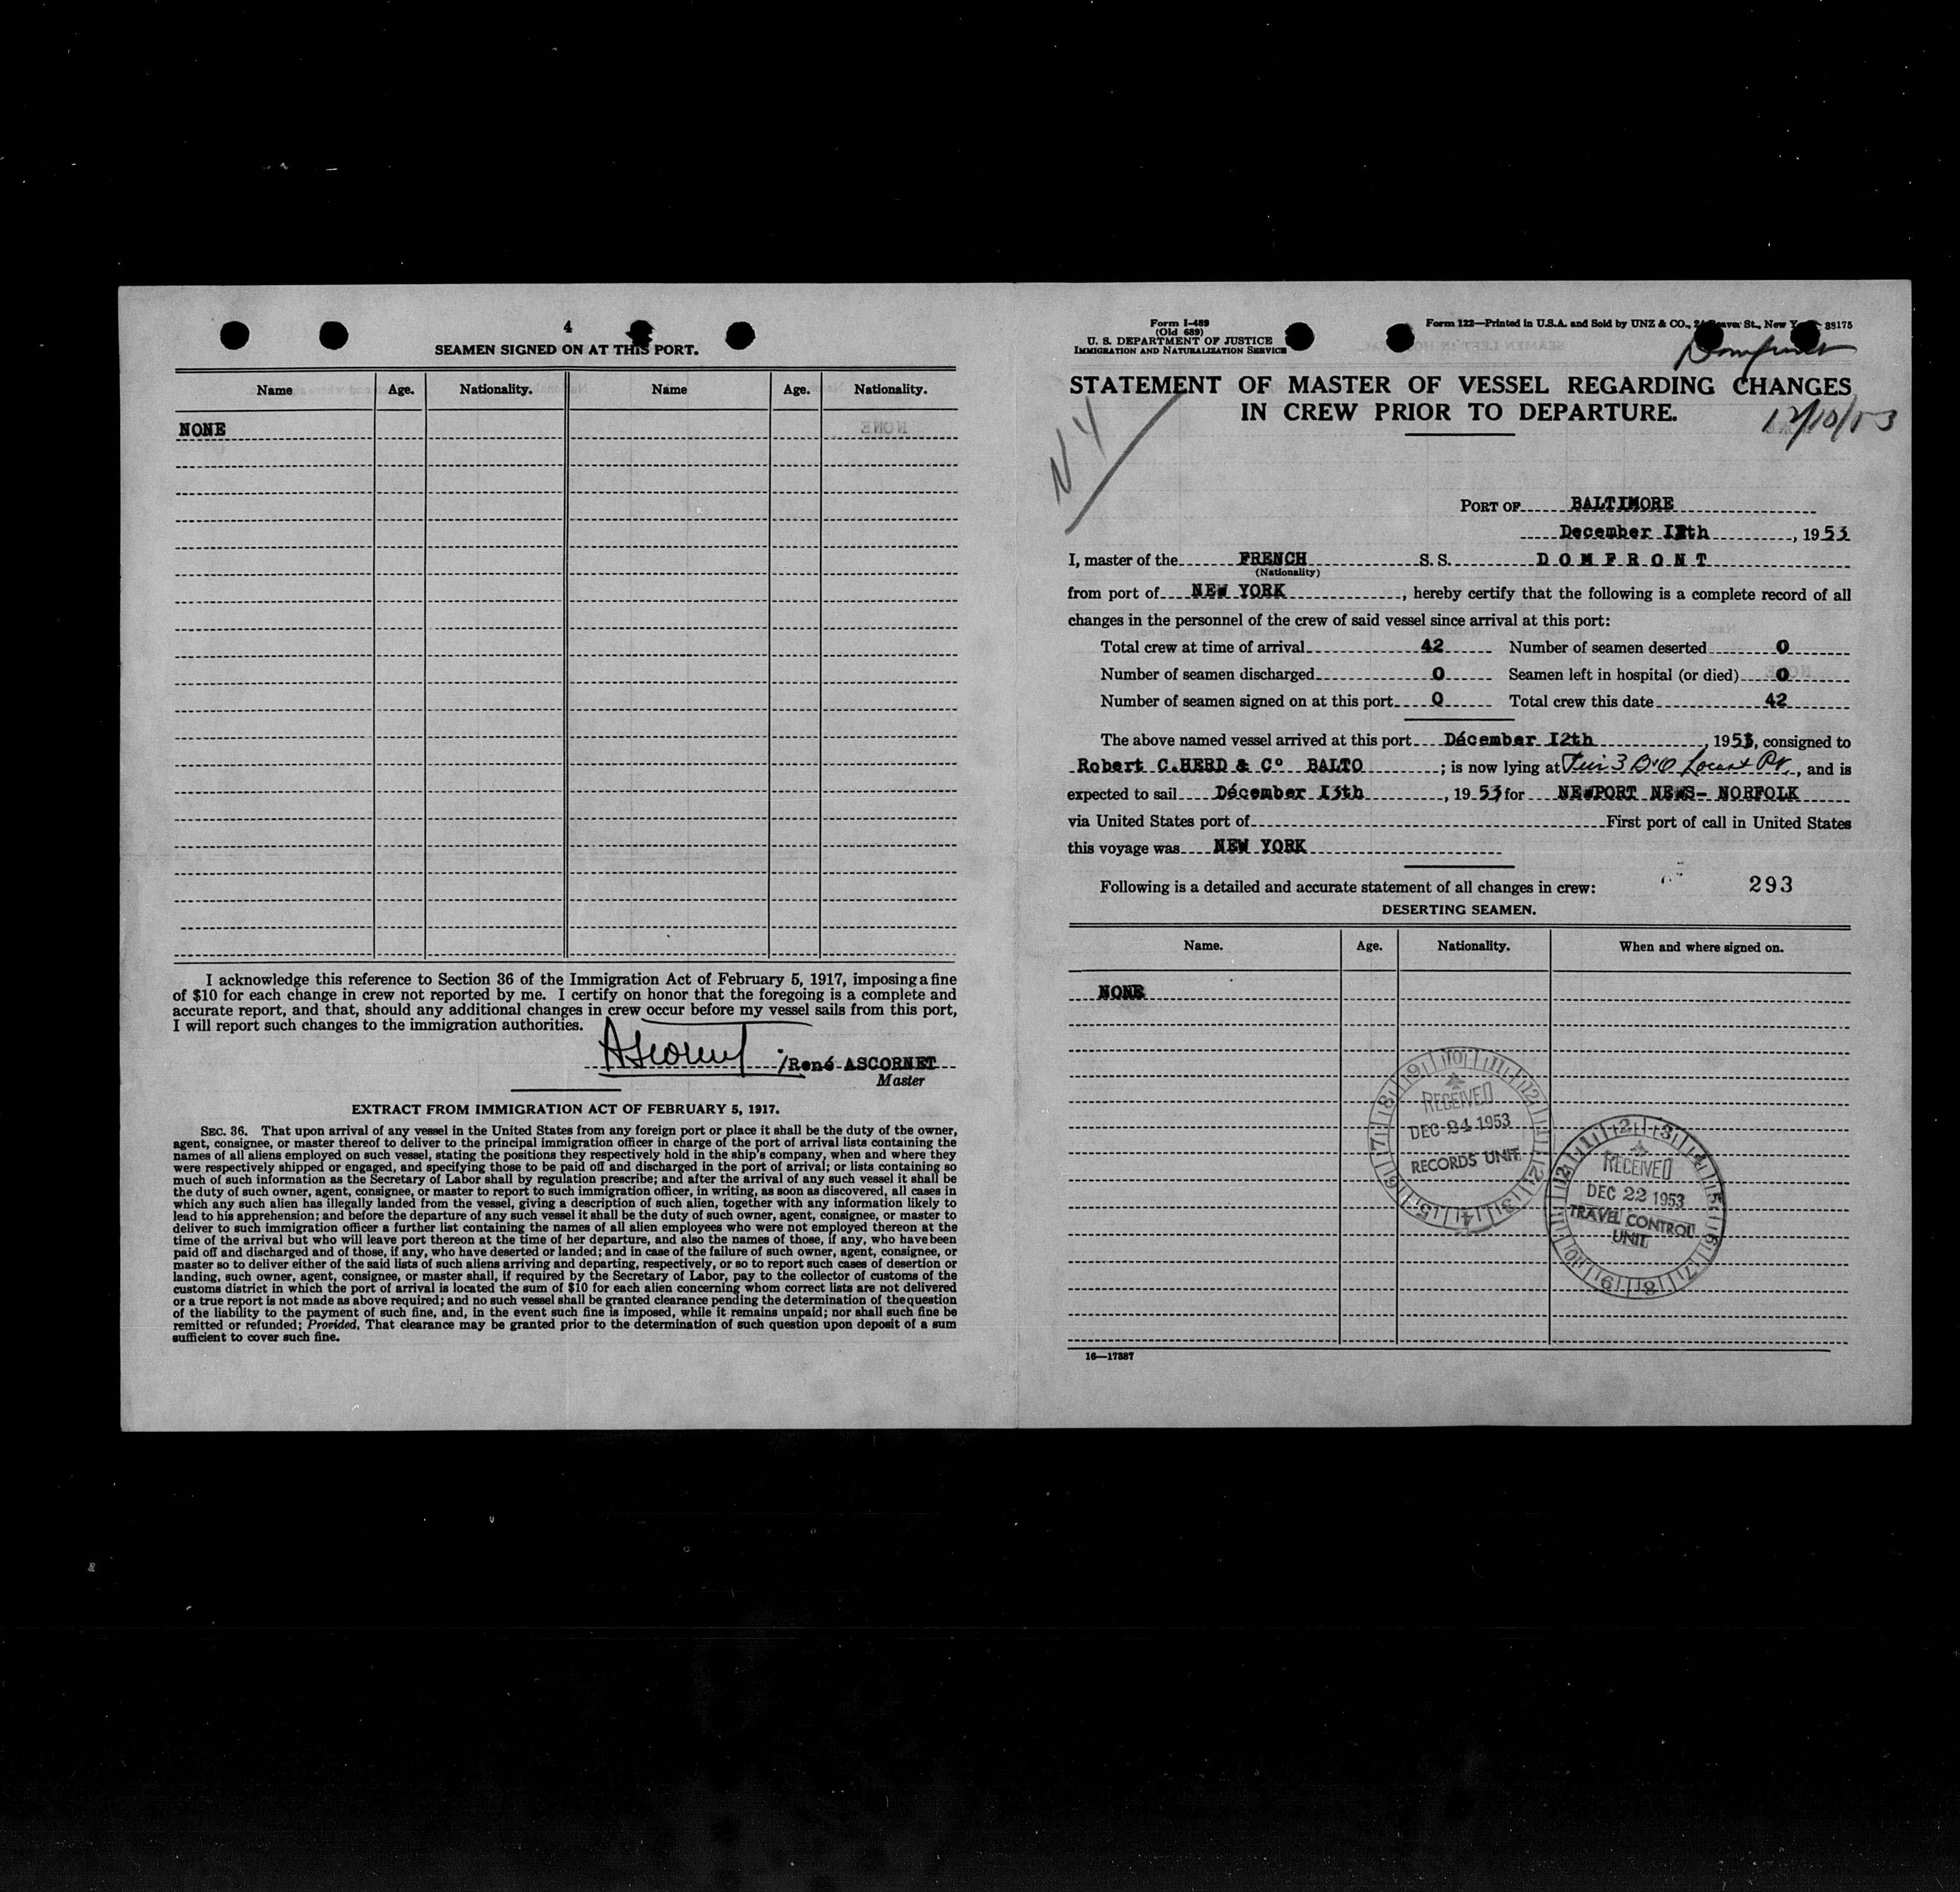 4
SEAMEN SIGNED ON AT THIS PORT.
Name Age. Nationality. Name Age. Nationality.
NONE
I acknowledge this reference to Section 36 of the Immigration Act of February 5, 1917, imposing a fine
of $10 for each change in crew not reported by me. I certify on honor that the foregoing is a complete and
accurate report, and that, should any additional changes in crew occur before my vessel sails from this port,
I will report such changes to the immigration authorities.
René ASCORNET
Master
EXTRACT FROM IMMIGRATION ACT OF FEBRUARY 5, 1917.
SEC. 36. That upon arrival of any vessel in the United States from any foreign port or place it shall be the duty of the owner,
agent, consignee, or master thereof to deliver to the principal immigration officer in charge of the port of arrival lists containing the
names of all aliens employed on such vessel, stating the positions they respectively hold in the ship's company, when and where they
were respectively shipped or engaged, and specifying those to be paid off and discharged in the port of arrival; or lists containing so
much of such information as the Secretary of Labor shall by regulation prescribe; and after the arrival of any such vessel it shall be
the duty of such owner, agent, consignee, or master to report to such immigration officer, in writing, as soon as discovered, all cases in
which any such alien has illegally landed from the vessel, giving a description of such alien, together with any information likely to
lead to his apprehension; and before the departure of any such vessel it shall be the duty of such owner, agent, consignee, or master to
deliver to such immigration officer a further list containing the names of all alien employees who were not employed thereon at the
time of the arrival but who will leave port thereon at the time of her departure, and also the names of those, if any, who have been
paid off and discharged and of those, if any, who have deserted or landed; and in case of the failure of such owner, agent, consignee, or
master so to deliver either of the said lists of such aliens arriving and departing, respectively, or so to report such cases of desertion or
landing, such owner, agent, consignee, or master shall, if required by the Secretary of Labor, pay to the collector of customs of the
customs district in which the port of arrival is located the sum of $10 for each alien concerning whom correct lists are not delivered
or a true report is not made as above required; and no such vessel shall be granted clearance pending the determination of the question
of the liability to the payment of such fine, and, in the event such fine is imposed, while it remains unpaid; nor shall such fine be
remitted or refunded; Provided, That clearance may be granted prior to the determination of such question upon deposit of a sum
sufficient to cover such fine.
Form I-489
(Old 689)
U. S. DEPARTMENT OF JUSTICE
IMMIGRATION AND NATURALIZATION SERVICE
Form 122—Printed in U.S.A. and Sold by UNZ & CO., St., New 38175
Domfront
STATEMENT OF MASTER OF VESSEL REGARDING CHANGES
IN CREW PRIOR TO DEPARTURE.
12/10/53
NY
PORT OF BALTIMORE
December , 1953
I, master of the FRENCH S. S. DOMFRONT
(Nationality)
from port of NEW YORK , hereby certify that the following is a complete record of all
changes in the personnel of the crew of said vessel since arrival at this port:
Total crew at time of arrival 42 Number of seamen deserted 0
Number of seamen discharged 0 Seamen left in hospital (or died) 0
Number of seamen signed on at this port 0 Total crew this date 42
The above named vessel arrived at this port Décember I2th , 1953, consigned to
Robert C.HERD & C° BALTO ; is now lying at Pier 3 B&O Locust Pt. , and is
expected to sail Décember I3th , 1953 for NEWPORT NEWS- NORFOLK
via United States port of First port of call in United States
this voyage was NEW YORK
Following is a detailed and accurate statement of all changes in crew: 293
DESERTING SEAMEN.
Name. Age. Nationality. When and where signed on.
NONE
RECEIVED
DEC 24 1953
RECORDS UNIT
RECEIVED
DEC 22 1953
TRAVEL CONTROL
UNIT
16—17887